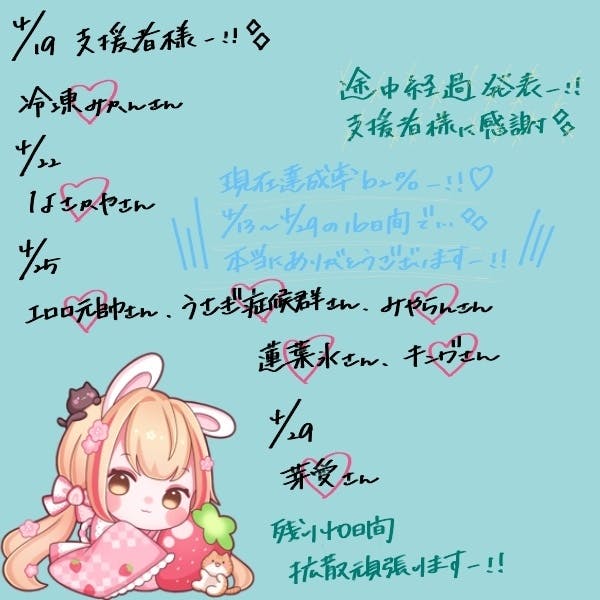 4/19 支援者様ー!!
冷凍みかんさん
4/22
はさみやさん
4/25
エロロ元帥さん、うさぎ症候群さん、みやらんさん
蓮葉氷さん、キングさん
4/29
芽愛さん
途中経過発表ー!!
支援者様に感謝
現在達成率62%ー!!♡
4/13〜4/29の16日間で…
本当にありがとうございますー!!
残り40日間
拡散頑張りますー!!